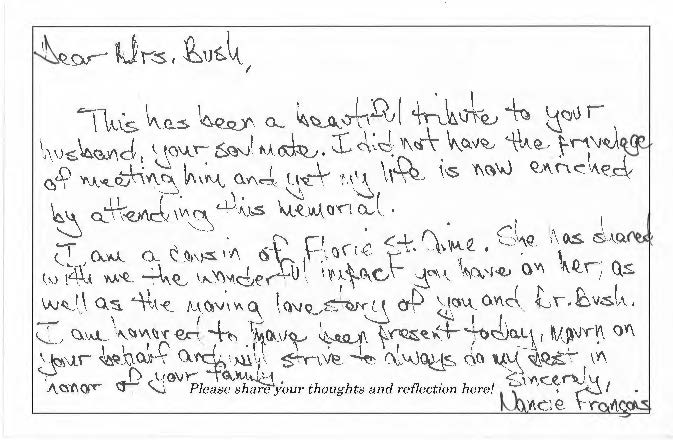 Dear Mrs. Bush,
This has been a beautiful tribute to your
husband, your soulmate. I did not have the privelege
of meeting him and yet my life is now enriched
by attending this memorial.
I am a cousin of Florie St. Aime. She has shared
with me the wonderful impact you have on her, as
well as the moving love story of you and Dr. Bush.
I am honored to have been present today, mourn on
your behalf and will strive to always do my best in
honor of your family.
Please share your thoughts and reflection here!
Sincerely,
Nancie François